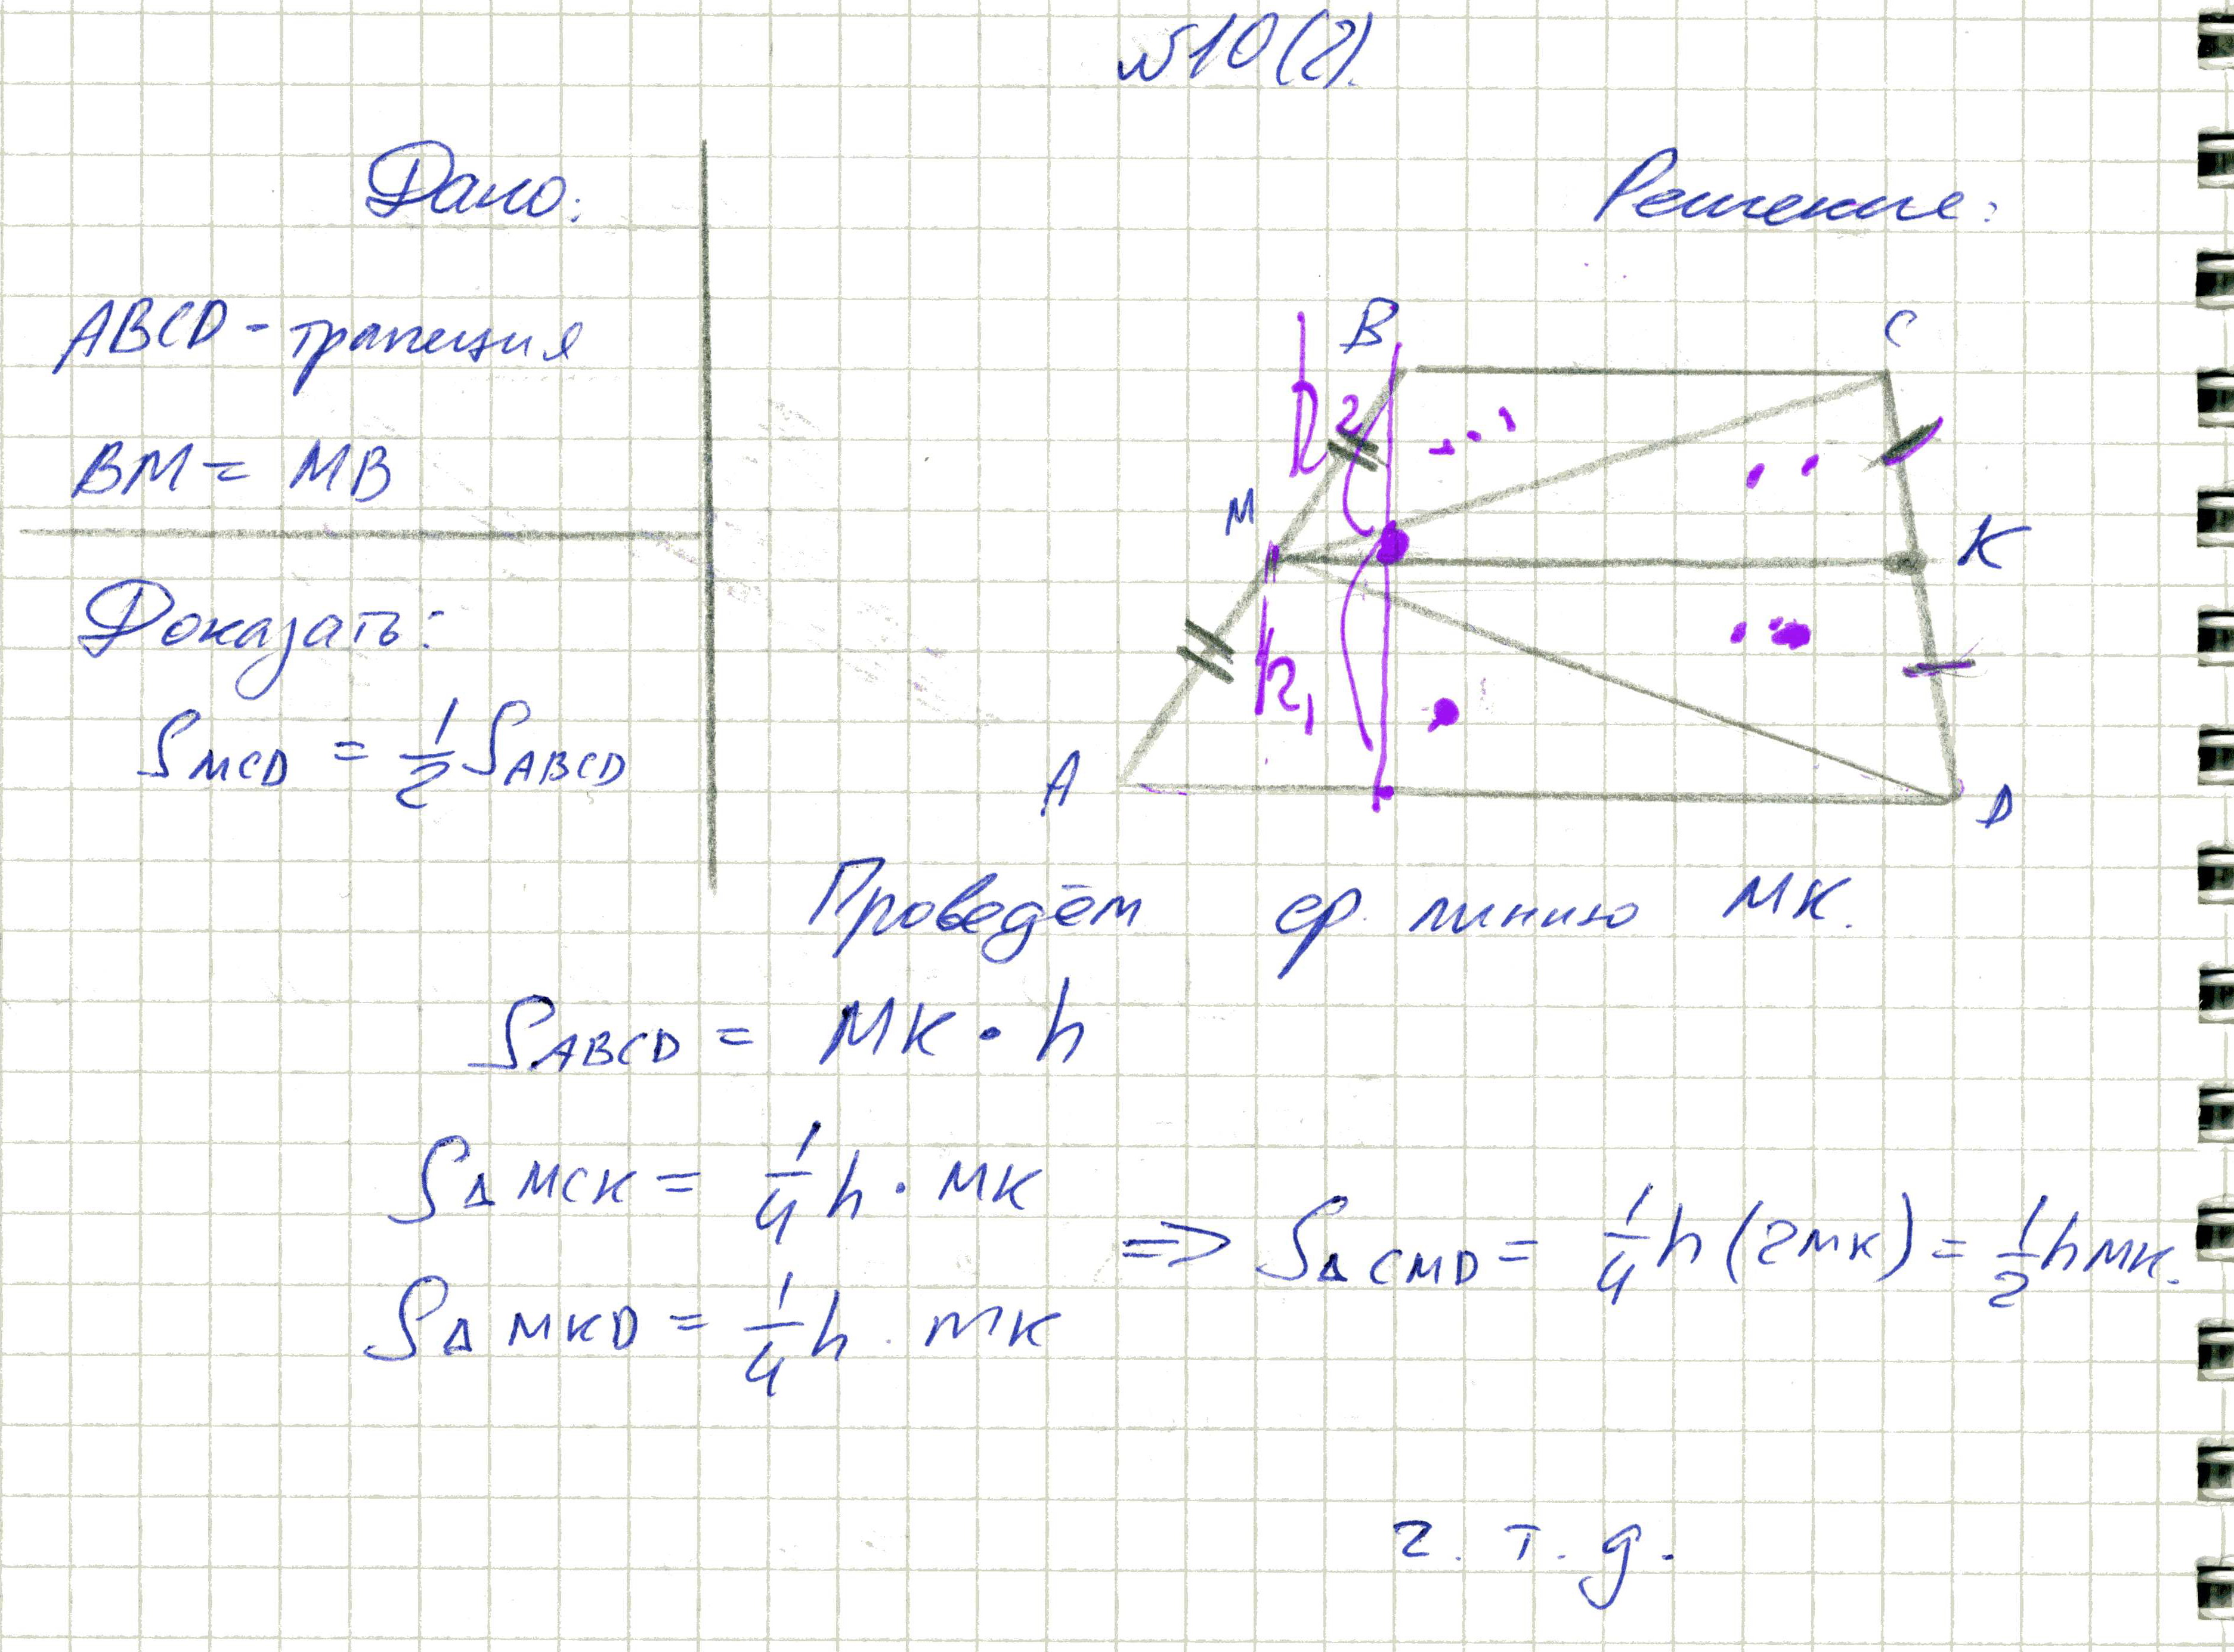 №10(2).
Дано:
ABCD - трапеция
BM = MB
Доказать:
S MCD = 1/2 S ABCD
Решение:
B C
h2
M K
h1
A D
Проведём ср. линию MK.
S ABCD = MK · h
S Δ MCK = 1/4 h · MK
S Δ MKD = 1/4 h · MK
=> S Δ CMD = 1/4 h (2MK) = 1/2 h MK.
ч. т. д.